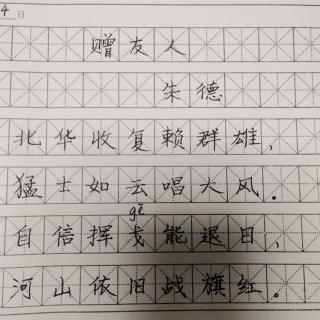 4日
赠友人
朱德
北华收复赖群雄，
猛士如云唱大风。
gē
自信挥戈能退日，
河山依旧战旗红。